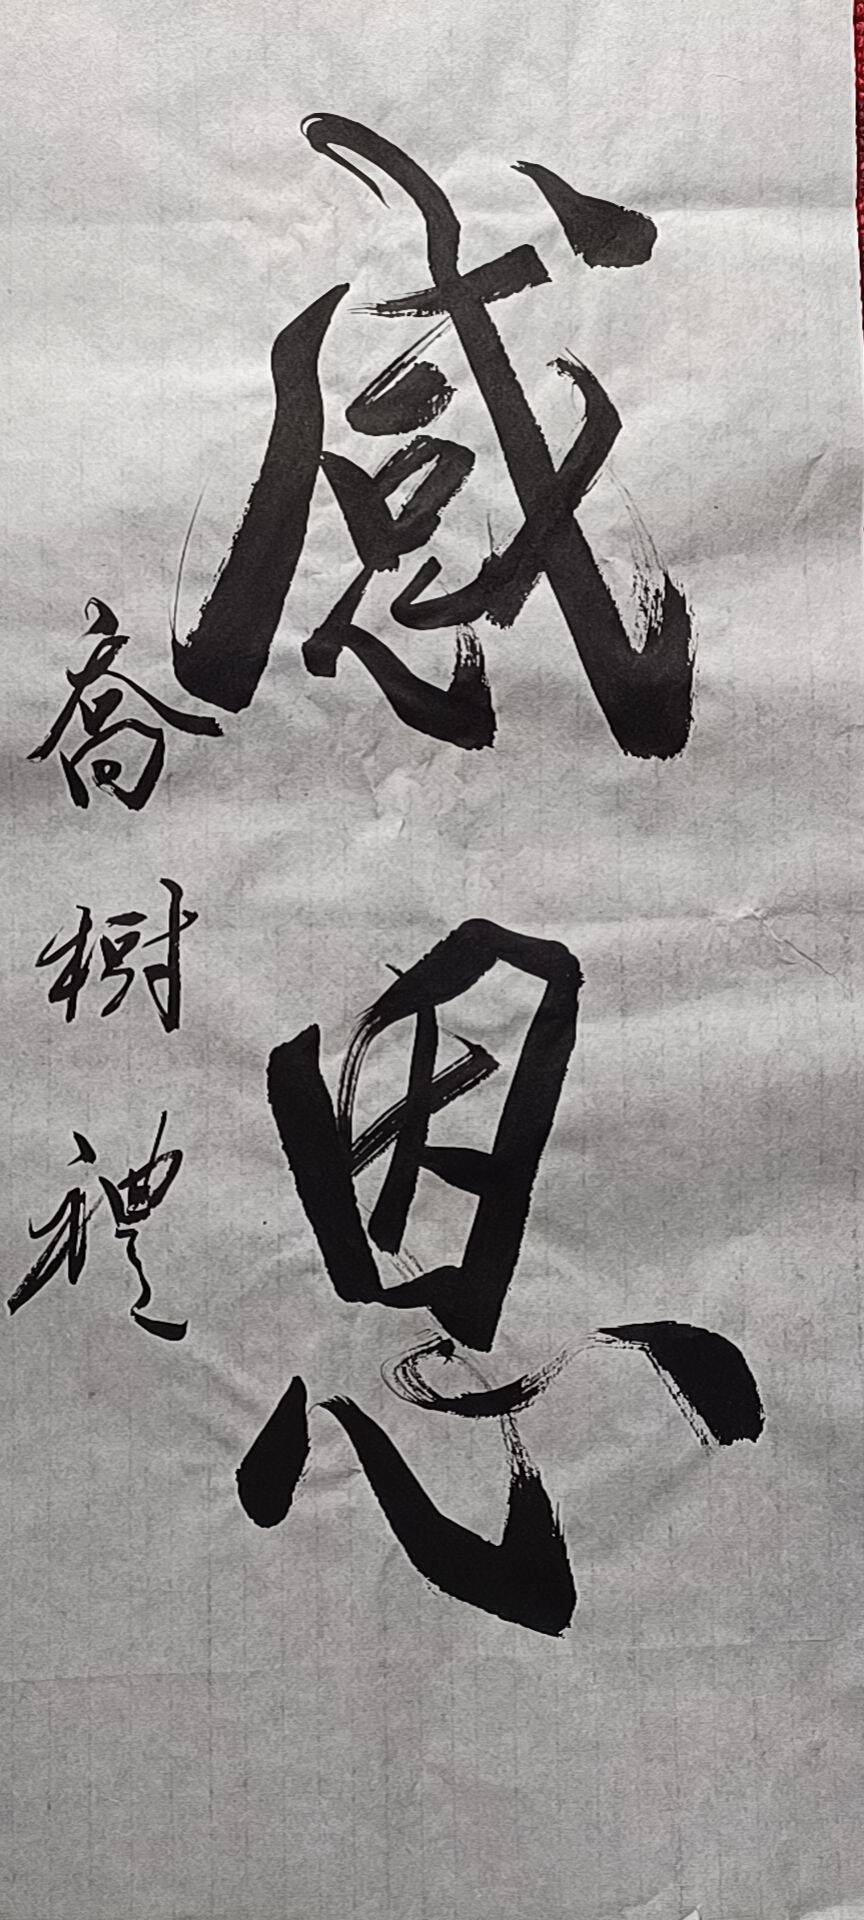 感恩
喬樹禮